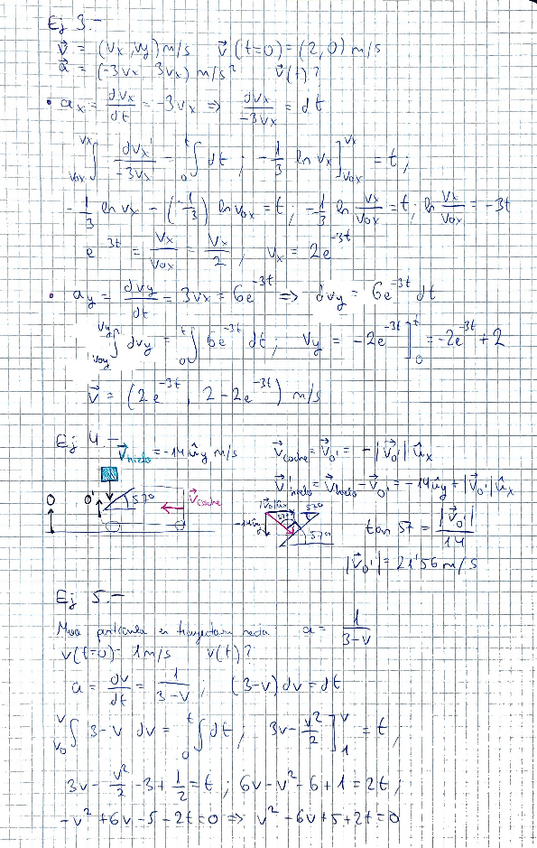 Ej 3.-
v⃗ = (vx, vy) m/s   v⃗(t=0) = (2, 0) m/s
a⃗ = (-3vx, 3vx) m/s²   v⃗(t)?
• ax = dvx/dt = -3vx ⇒ dvx/-3vx = dt
∫_{vox}^{vx} dvx/-3vx = ∫_0^t dt ; -1/3 ln vx]_{vox}^{vx} = t ;
-1/3 ln vx - (-1/3) ln vox = t ; -1/3 ln vx/vox = t ; ln vx/vox = -3t
e^{-3t} = vx/vox = vx/2 ; vx = 2e^{-3t}
• ay = dvy/dt = 3vx = 6e^{-3t} ⇒ dvy = 6e^{-3t} dt
∫_{voy}^{vy} dvy = ∫_0^t 6e^{-3t} dt ; vy = -2e^{-3t}]_0^t = -2e^{-3t} + 2
v⃗ = (2e^{-3t}, 2-2e^{-3t}) m/s
Ej 4.-
v⃗hielo = -14 ûy m/s
O   O'   57º   v⃗coche
v⃗coche = v⃗o' = -|v⃗o'| ûx
v⃗'hielo = v⃗hielo - v⃗o' = -14ûy + |v⃗o'| ûx
|v⃗o'| ûx
-14ûy
57º
tan 57 = |v⃗o'|/14
|v⃗o'| = 21'56 m/s
Ej 5.-
trayectoria recta   a = 1/(3-v)
v(t=0) = 1m/s   v(t)?
a = dv/dt = 1/(3-v) ; (3-v) dv = dt
∫_{vo}^{v} 3-v dv = ∫_0^t dt ; 3v - v²/2]_1^v = t ;
3v - v²/2 - 3 + 1/2 = t ; 6v - v² - 6 + 1 = 2t ;
-v² + 6v - 5 - 2t = 0 ⇒ v² - 6v + 5 + 2t = 0